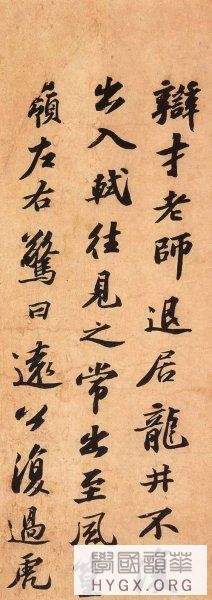 辯才老師退居龍井不
出入軾往見之常出至風
嶺左右驚曰遠公復過虎
國學韻華
HYGX.ORG